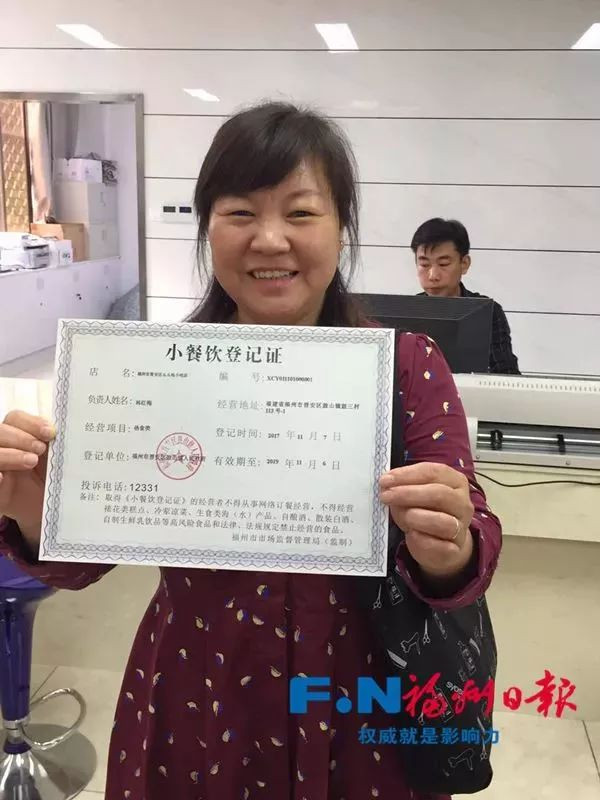 小餐饮登记证
店 名:福州市晋安区
编 号: XCY0111010000001
负责人姓名:
经营地址:福建省福州市晋安区鼓山镇鼓三村
113号-1
经营项目:热食类
登记时间: 2017 年 11 月 7 日
登记单位:福州市晋安区鼓山镇人民政府
有效期至: 2019 年 11 月 6 日
投诉电话:12331
备注:取得《小餐饮登记证》的经营者不得从事网络订餐经营,不得经营
裱花类糕点、冷荤凉菜、生食类海(水)产品、自酿酒、散装白酒、
自制生鲜乳饮品等高风险食品和法律、法规规定禁止经营的食品。
福州市市场监督管理局(监制)
F.N福州日报
权威就是影响力